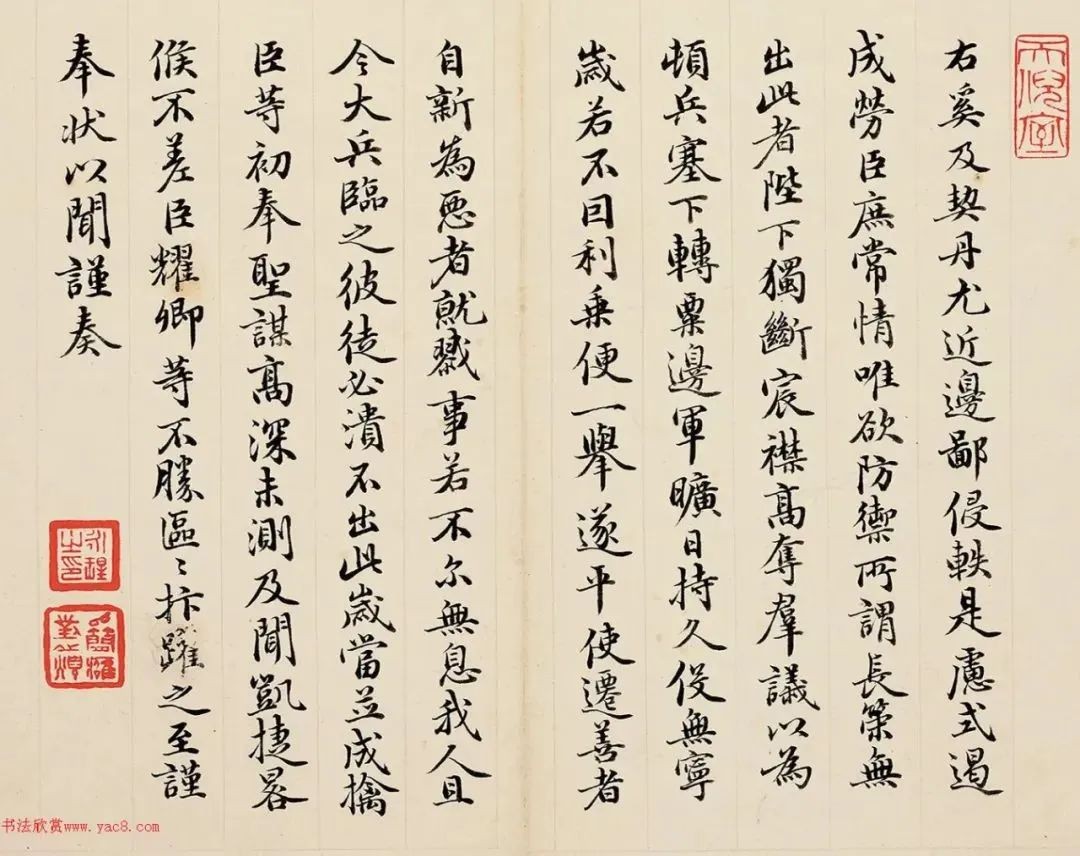 右奚及契丹尤近邊鄙侵軼是慮式遏
成勞臣庶常情唯欲防禦所謂長策無
出此者陛下獨斷宸襟高奪羣議以為
頓兵塞下轉粟邊軍曠日持久役無寧
歲若不因利乗便一舉遂平使遷善者
自新為惡者就戮事若不尔無息我人且
今大兵臨之彼徒必潰不出此歲當並成擒
臣等初奉聖謀高深未測及聞凱捷晷
候不差臣耀卿等不勝區〻抃躍之至謹
奉狀以聞謹奏
書法欣赏www.yac8.com